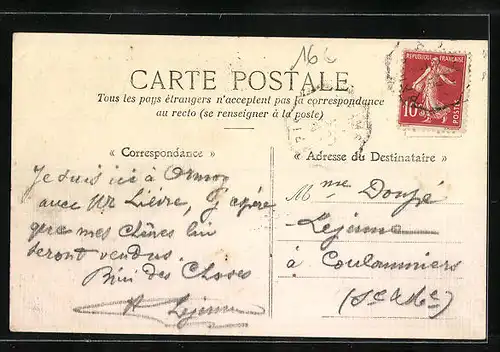 16c
CARTE POSTALE
Tous les pays étrangers n'acceptent pas la correspondance
au recto (se renseigner à la poste)
RÉPUBLIQUE FRANÇAISE
10
POSTES
« Correspondance »
« Adresse du Destinataire »
Je suis ici à Ormoy
avec Mr Lièvre, j'espère
que mes chênes lui
seront vendus.
Bien des Choses
A Lejeune
Mme
Lejeune
à Coulommiers
(S et Me)